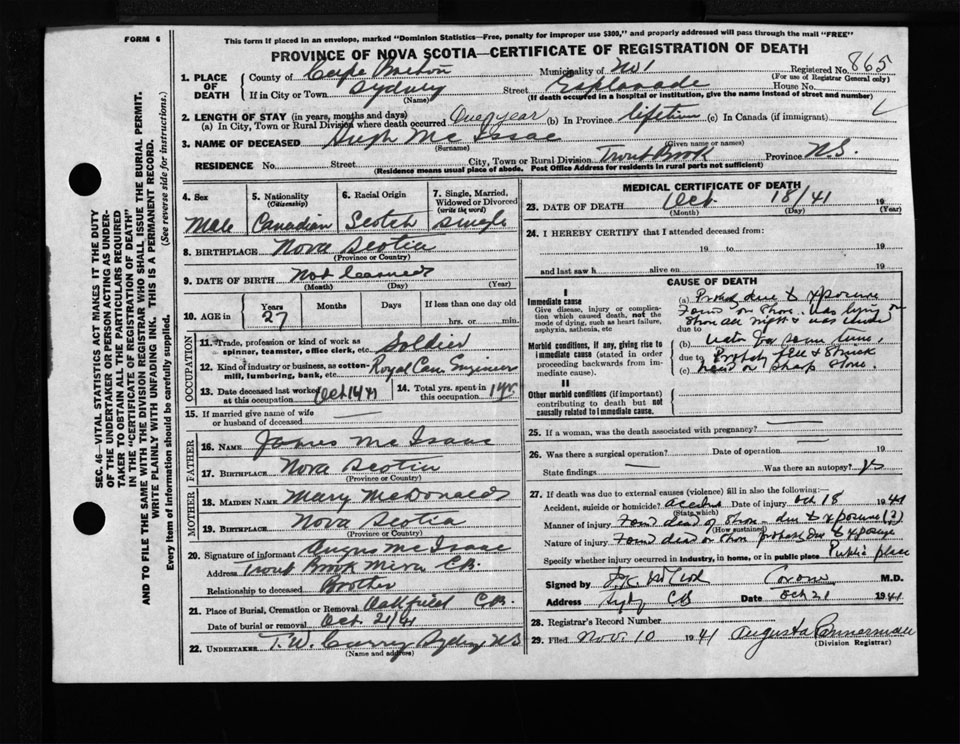 FORM 6
This form if placed in an envelope, marked "Dominion Statistics—Free, penalty for improper use $300," and properly addressed will pass through the mail "FREE"
PROVINCE OF NOVA SCOTIA—CERTIFICATE OF REGISTRATION OF DEATH
SEC. 46—VITAL STATISTICS ACT MAKES IT THE DUTY
OF THE UNDERTAKER OR PERSON ACTING AS UNDER-
TAKER TO OBTAIN ALL THE PARTICULARS REQUIRED
IN THE "CERTIFICATE OF REGISTRATION OF DEATH"
AND TO FILE THE SAME WITH THE DIVISION REGISTRAR WHO SHALL ISSUE THE BURIAL PERMIT.
WRITE PLAINLY WITH UNFADING INK. THIS IS A PERMANENT RECORD.
Every item of information should be carefully supplied. (See reverse side for instructions.)
1. PLACE OF DEATH
County of Cape Breton Municipality of No 1 Registered No. 865
(For use of Registrar General only)
If in City or Town Sydney Street Esplanade House No.
(Name) (If death occurred in a hospital or institution, give the name instead of street and number)
2. LENGTH OF STAY (in years, months and days)
(a) In City, Town or Rural Division where death occurred One year (b) In Province lifetime (c) In Canada (if immigrant)
3. NAME OF DECEASED Hugh Mc Isaac
(Surname) (Given name or names)
RESIDENCE No. Street City, Town or Rural Division Trout Brook Province N.S.
(Residence means usual place of abode. Post Office Address for residents in rural parts not sufficient)
4. Sex Male
5. Nationality (Citizenship) Canadian
6. Racial Origin Scotch
7. Single, Married, Widowed or Divorced (write the word) Single
8. BIRTHPLACE Nova Scotia
(Province or Country)
9. DATE OF BIRTH Not learned
(Month) (Day) (Year)
10. AGE in Years 27 Months Days If less than one day old
hrs. or min.
OCCUPATION
11. Trade, profession or kind of work as spinner, teamster, office clerk, etc. Soldier
12. Kind of industry or business, as cotton-mill, lumbering, bank, etc. Royal Can. Engineers
13. Date deceased last worked at this occupation Oct 14/41
14. Total yrs. spent in this occupation 1 yr.
15. If married give name of wife or husband of deceased
FATHER
16. NAME James Mc Isaac
17. BIRTHPLACE Nova Scotia
(Province or Country)
MOTHER
18. MAIDEN NAME Mary McDonald
19. BIRTHPLACE Nova Scotia
(Province or Country)
20. Signature of informant Angus Mc Isaac
Address Trout Brook Mira C.B.
Relationship to deceased Brother
21. Place of Burial, Cremation or Removal Oakfield C.B.
Date of burial or removal Oct. 21/41
22. UNDERTAKER T.W. Curry Sydney NS
(Name and address)
MEDICAL CERTIFICATE OF DEATH
23. DATE OF DEATH Oct. 18/41 19
(Month) (Day) (Year)
24. I HEREBY CERTIFY that I attended deceased from:
19 to 19
and last saw h alive on 19
CAUSE OF DEATH
I
Immediate cause
Give disease, injury or complication which caused death, not the mode of dying, such as heart failure, asphyxia, asthenia, etc
Morbid conditions, if any, giving rise to immediate cause (stated in order proceeding backwards from immediate cause).
II
Other morbid conditions (if important) contributing to death but not causally related to immediate cause.
(a) Probably due to exposure
Found on shore. Was lying on
due to shore all night & was under
(b) water for some time.
due to Probably fell & struck
(c) head on sharp stone.
25. If a woman, was the death associated with pregnancy?
26. Was there a surgical operation? Date of operation 19
State findings Was there an autopsy? yes
27. If death was due to external causes (violence) fill in also the following:—
Accident, suicide or homicide? accident Date of injury Oct 18 1941
(State which)
Manner of injury Found dead on shore — due to exposure (?)
(How sustained)
Nature of injury Found dead on shore probably due to exposure
Specify whether injury occurred in industry, in home, or in public place Public place
Signed by Coroner M.D.
Address Sydney CB Date Oct 21 1941
28. Registrar's Record Number
29. Filed Nov. 10 1941 Augusta Bannerman
(Division Registrar)